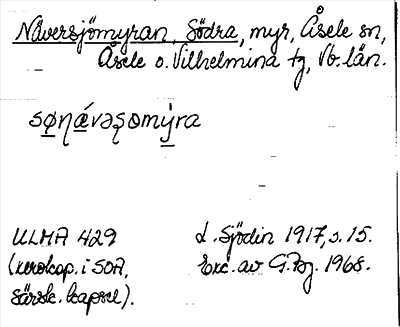 Nåversjömyran, Södra, myr, Åsele sn,
Åsele o. Vilhelmina tg, Vb. län.
sønǽvaʂomýra
ULMA 429
(xeroxkop. i SOA,
särsk. kapsel).
L. Sjödin 1917, s. 15.
Exc. av G.Bj. 1968.